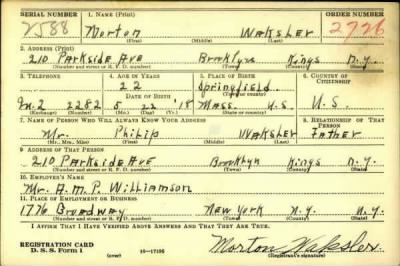 SERIAL NUMBER 1. NAME (Print) ORDER NUMBER
2588 Morton Waksler 2726
(First) (Middle) (Last)
2. ADDRESS (Print)
210 Parkside Ave Brooklyn Kings N.Y.
(Number and street or R. F. D. number) (Town) (County) (State)
3. TELEPHONE 4. AGE IN YEARS 5. PLACE OF BIRTH 6. COUNTRY OF CITIZENSHIP
22 Springfield
DATE OF BIRTH (Town or county)
2282 5 22 '18 Mass. U.S. U.S.
(Exchange) (Number) (Mo.) (Day) (Yr.) (State or country)
7. NAME OF PERSON WHO WILL ALWAYS KNOW YOUR ADDRESS 8. RELATIONSHIP OF THAT PERSON
Mr. Philip Waksler Father
(Mr., Mrs., Miss) (First) (Middle) (Last)
9. ADDRESS OF THAT PERSON
210 Parkside Ave Brooklyn Kings N.Y.
(Number and street or R. F. D. number) (Town) (County) (State)
10. EMPLOYER'S NAME
Mr. A.M.P. Williamson
11. PLACE OF EMPLOYMENT OR BUSINESS
1776 Broadway New York N.Y. N.Y.
(Number and street or R. F. D. number) (Town) (County) (State)
I AFFIRM THAT I HAVE VERIFIED ABOVE ANSWERS AND THAT THEY ARE TRUE.
REGISTRATION CARD
D. S. S. Form 1 (over) Morton Waksler
(Registrant's signature)